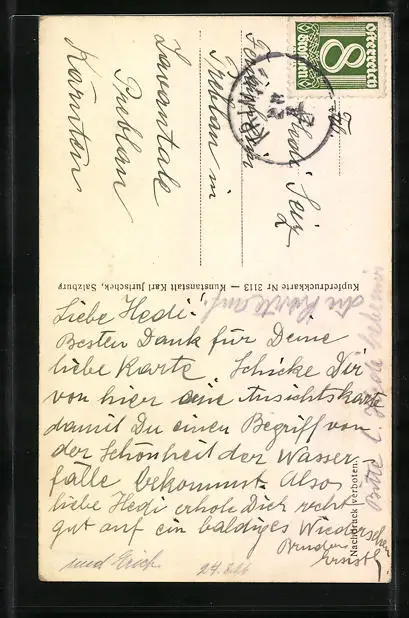 Österreich
8
Groschen
Frl.
Hedi Seiz
Preblau in
Lavanttale
Preblau
Kärnten
Kupferdruckkarte Nr 3113 — Kunstanstalt Karl Jurischek, Salzburg
Liebe Hedi!
Besten Dank für Deine
liebe Karte. Schicke Dir
von hier eine Ansichtskarte
damit Du einen Begriff von
der Schönheit der Wasser
fälle bekommst. Also
liebe Hedi erhole Dich recht
gut auf ein baldiges Wiedersehen
Bruder
Ernst
und Erich
Nachdruck verboten.